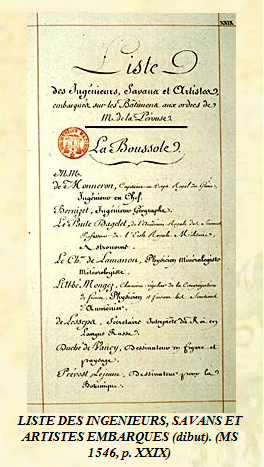 XXIX
Liste
des Ingénieurs, Savans et Artistes
embarqués sur les Bâtimens aux ordres de
M. de la Pérouse
La Boussole
M.M.
de Monneron, Capitaine au Corps Royal du Génie,
Ingénieur en Chef.
Bernizet, Ingénieur Géographe.
Le Paute Dagelet, de l'Académie Royale des Sciences
Professeur de l'Ecole Royale Militaire,
Astronome.
Le Ch.er de Lamanon, Physicien Minéralogiste
Météorologiste.
L'Abbé Mongez, Chanoine régulier de la Congrégation
de france, Physicien et faisant les fonctions
d'Aumônier.
de Lesseps, Sécrétaire Interprète du Roi en
Langue Russe.
Duché de Vancy, Dessinateur en figure et
paysage.
Prévost Lejeune, Dessinateur pour la
Botanique.
LISTE DES INGENIEURS, SAVANS ET
ARTISTES EMBARQUES (dibut). (MS
1546, p. XXIX)